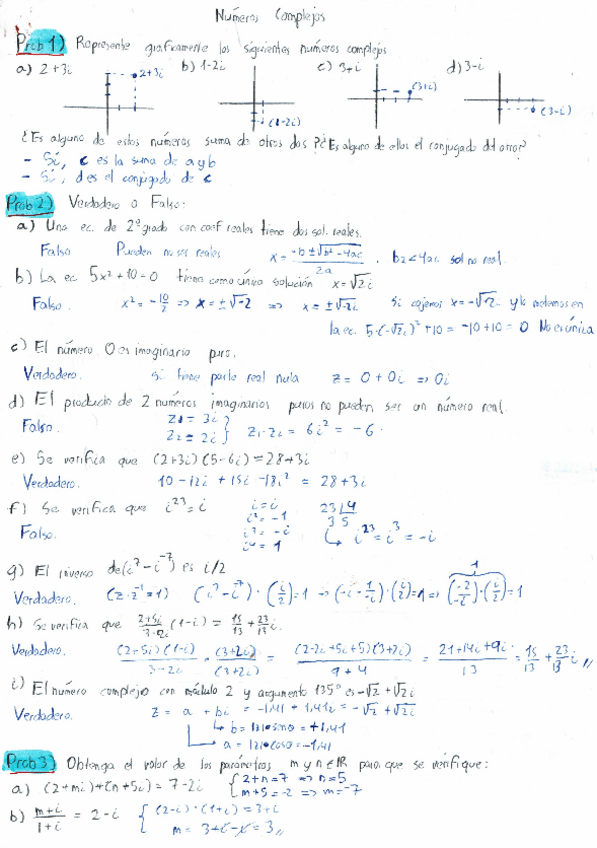 Números Complejos
Prob 1) Represente graficamente los siguientes numeros complejos
a) 2+3i b) 1-2i c) 3+i d) 3-i
2+3i (1-2i) (3+i) (3-i)
¿Es alguno de estos números suma de otros dos? ¿Es alguno de ellos el conjugado del otro?
- Sí, c es la suma de a y b
- Sí, d es el conjugado de c
Prob 2) Verdadero o Falso:
a) Una ec. de 2º grado con coef reales tiene dos sol. reales.
Falso Pueden no ser reales x = -b±√b²-4ac / 2a . b²<4ac sol no real.
b) La ec 5x²+10=0 tiene como única solución x=√2i
Falso. x² = -10/2 => x=±√-2 => x=±√2i Si cojemos x=-√2 y lo metemos en
la ec. 5·(-√2i)²+10 = -10+10 = 0 No es única
c) El número 0 es imaginario puro.
Verdadero. si tiene parte real nula z = 0+0i => 0i
d) El producto de 2 numeros imaginarios puros no pueden ser un número real.
Falso. z1 = 3i z2 = 2i } z1·z2 = 6i² = -6
e) Se verifica que (2+3i)(5-6i)=28+3i
Verdadero. 10-12i+15i-18i² = 28+3i
f) Se verifica que i²³=i i=i 23 |4
Falso. i²=-1 3 5
i³=-i i²³=i³=-i
i⁴=1
g) El inverso de (i⁷-i⁻⁷) es i/2 1
Verdadero. (z·z⁻¹=1) (i⁷-i⁻⁷)·(i/2)=1 → (-i-1/-i)·(i/2)=1 → (-2/-i)·(i/2)=1
h) Se verifica que 2+5i/3-2i (1-i) = 15/13+23/13i.
Verdadero. (2+5i)(1-i)/3-2i · (3+2i)/(3+2i) = (2-2i+5i+5)(3+2i)/9+4 = 21+14i+9i·/13 = 15/13+23/13i //
i) El número complejo con módulo 2 y argumento 135º es -√2+√2i
Verdadero. z = a + bi = -1,41+1,41i = -√2+√2i
b = |z|·senα = +1,41
a = |z|·cosα = -1,41
Prob 3) Obtenga el valor de los parámetros m y n∈ℝ para que se verifique:
a) (2+mi)+(n+5i) = 7-2i { 2+n=7 => n=5
m+5=-2 => m=-7
b) m+i/1+i = 2-i { (2-i)·(1+i)=3+i
m = 3+i-i = 3 //